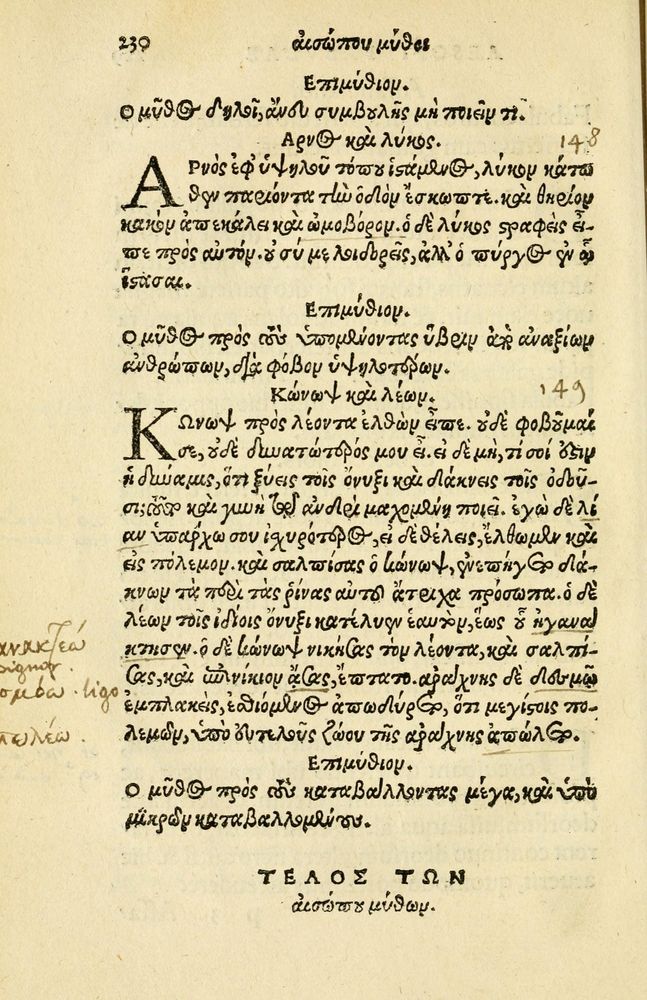 230 αἰσώπου μῦθοι
Επιμύθιον.
Ο μῦθος δηλοῖ, ἄνευ συμβουλῆς μὴ ποιεῖν τι.
Αρνὸς καὶ λύκος. 148
ΑΡνὸς ἐφ᾽ ὑψηλοῦ τόπου ἱστάμενος, λύκον κάτω
θεν παριόντα τὴν ὁδὸν ἔσκωπτε. καὶ θηρίον
κακὸν ἀπεκάλει καὶ ὠμοβόρον. ὁ δὲ λύκος στραφεὶς εἶ-
πε πρὸς αὐτόν. οὐ σύ με λοιδορεῖς, ἀλλ᾽ ὁ πύργος ἐν ᾧ
ἵστασαι.
Επιμύθιον.
Ο μῦθος πρὸς τοὺς ὑπομένοντας ὕβριν ἀπὸ ἀναξίων
ἀνθρώπων, διὰ φόβον ὑψηλοτέρων.
Κώνωψ καὶ λέων. 149
ΚΩνωψ πρὸς λέοντα ἐλθὼν εἶπε. οὐδὲ φοβοῦμαί
σε, οὐδὲ δυνατώτερός μου εἶ. εἰ δὲ μὴ, τί σοί ἐστιν
ἡ δύναμις, ὅτι ξύεις τοῖς ὄνυξι καὶ δάκνεις τοῖς ὀδοῦ-
σι; τοῦτο καὶ γυνὴ τῷ ἀνδρὶ μαχομένη ποιεῖ. ἐγὼ δὲ λί
αν ὑπάρχω σου ἰσχυρότερος, εἰ δὲ θέλεις, ἔλθωμεν καὶ
εἰς πόλεμον. καὶ σαλπίσας ὁ κώνωψ, ἐνεπήγετο δά-
κνων τὰ περὶ τὰς ῥῖνας αὐτοῦ ἄτριχα πρόσωπα. ὁ δὲ
λέων τοῖς ἰδίοις ὄνυξι κατέλυεν ἑαυτὸν, ἕως οὗ ἠγανα
κτησεν. ὁ δὲ κώνωψ νικήσας τὸν λέοντα, καὶ σαλπί-
σας, καὶ ἐπινίκιον ᾄσας, ἔπτατο. ἀράχνης δὲ δεσμῷ
ἐμπλακεὶς, ἐσθιόμενος ἀπωδύρετο, ὅτι μεγίστοις πο-
λεμῶν, ὑπὸ εὐτελοῦς ζώου τῆς ἀράχνης ἀπώλετο.
Επιμύθιον.
Ο μῦθος πρὸς τοὺς καταβάλλοντας μέγα, καὶ ὑπὸ
μικρῶν καταβαλλομένους.
ΤΕΛΟΣ ΤΩΝ
αἰσώπου μύθων.